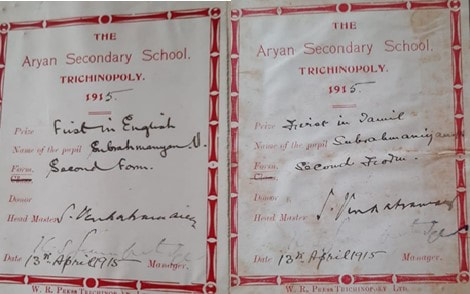 THE
Aryan Secondary School,
TRICHINOPOLY.
1915.
Prize First in English
Name of the pupil Subrahmanyan V.
Form Second Form.
Class
Donor
Head Master
Date 13th April 1915 Manager.
W. R. PRESS TRICHINOPOLY LTD.
THE
Aryan Secondary School,
TRICHINOPOLY.
1915.
Prize First in Tamil
Name of the pupil Subrahmaniyan
Form Second Form.
Class
Donor
Head Master
Date 13th April 1915 Manager.
W. R. PRESS TRICHINOPOLY LTD.